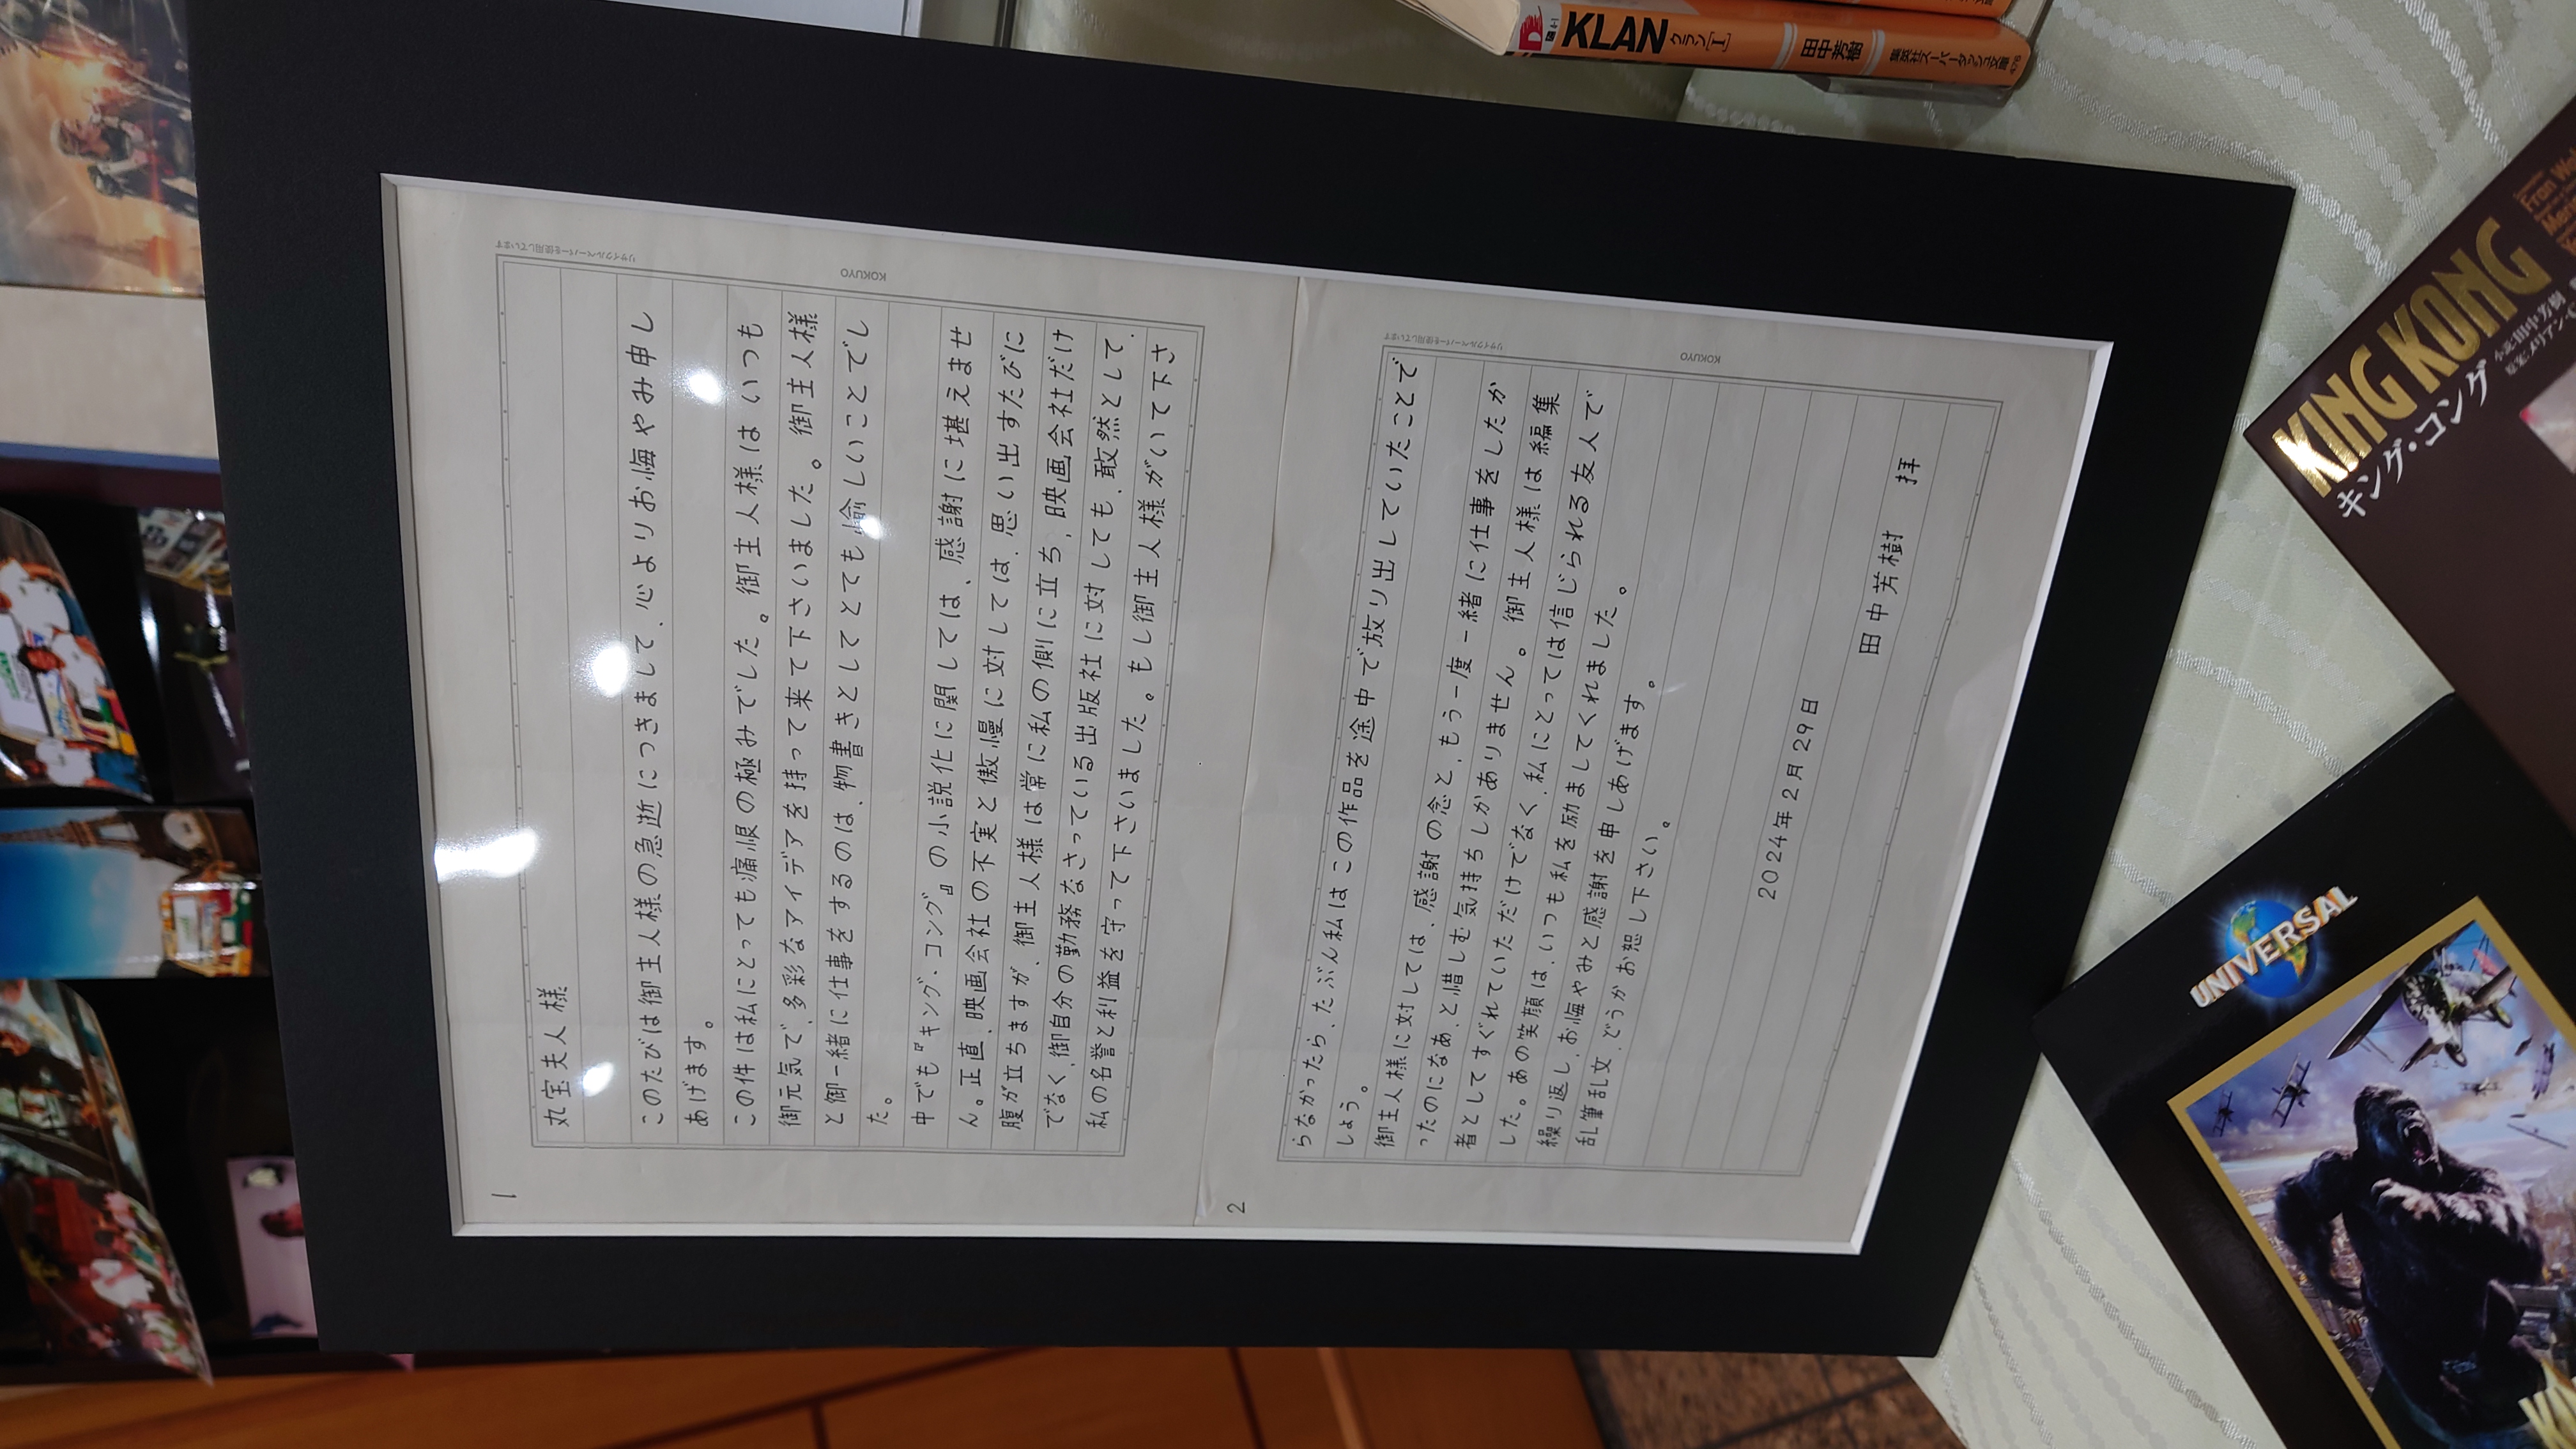 1
丸宝夫人様
このたびは御主人様の急逝につきまして、心よりお悔やみ申し
あげます。
この件は私にとっても痛恨の極みでした。御主人様はいつも
御元気で、多彩なアイデアを持って来て下さいました。御主人様
と御一緒に仕事をするのは、物書きとしてとても愉しいことでし
た。
中でも『キング・コング』の小説化に関しては、感謝に堪えませ
ん。正直、映画会社の不実と傲慢に対しては、思い出すたびに
腹が立ちますが、御主人様は常に私の側に立ち、映画会社だけ
でなく、御自分の勤務なさっている出版社に対しても、敢然として、
私の名誉と利益を守って下さいました。もし御主人様がいて下さ
リサイクルペーパーを使用しています
KOKUYO
2
らなかったら、たぶん私はこの作品を途中で放り出していたことで
しょう。
御主人様に対しては、感謝の念と、もう一度一緒に仕事をしたか
ったのになあ、と惜しむ気持ちしかありません。御主人様は編集
者としてすぐれていただけでなく、私にとっては信じられる友人で
した。あの笑顔は、いつも私を励ましてくれました。
繰り返し、お悔やみと感謝を申しあげます。
乱筆乱文、どうかお恕し下さい。
2024年2月29日
田中芳樹 拝
リサイクルペーパーを使用しています
KOKUYO
KLAN
クラン[I]
田中芳樹
集英社スーパーダッシュ文庫
KING KONG
キング・コング
小説:田中芳樹
UNIVERSAL